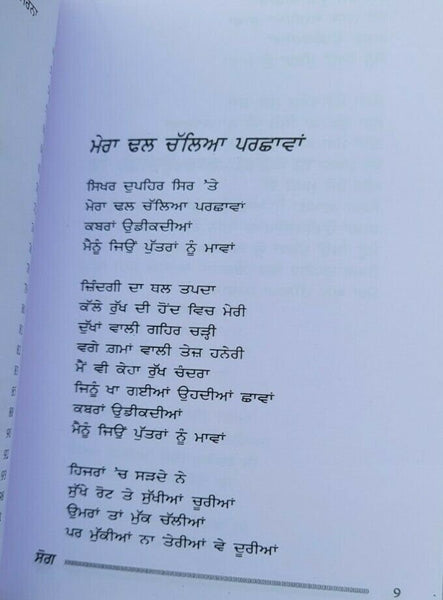 ਮੇਰਾ ਢਲ ਚੱਲਿਆ ਪਰਛਾਵਾਂ
ਸਿਖਰ ਦੁਪਹਿਰ ਸਿਰ 'ਤੇ
ਮੇਰਾ ਢਲ ਚੱਲਿਆ ਪਰਛਾਵਾਂ
ਕਬਰਾਂ ਉਡੀਕਦੀਆਂ
ਮੈਨੂੰ ਜਿਉਂ ਪੁੱਤਰਾਂ ਨੂੰ ਮਾਵਾਂ
ਜ਼ਿੰਦਗੀ ਦਾ ਥਲ ਤਪਦਾ
ਕੱਲੇ ਰੁੱਖ ਦੀ ਹੋਂਦ ਵਿਚ ਮੇਰੀ
ਦੁੱਖਾਂ ਵਾਲੀ ਗਹਿਰ ਚੜ੍ਹੀ
ਵਗੇ ਗ਼ਮਾਂ ਵਾਲੀ ਤੇਜ਼ ਹਨੇਰੀ
ਮੈਂ ਵੀ ਕੇਹਾ ਰੁੱਖ ਚੰਦਰਾ
ਜਿਨੂੰ ਖਾ ਗਈਆਂ ਉਹਦੀਆਂ ਛਾਵਾਂ
ਕਬਰਾਂ ਉਡੀਕਦੀਆਂ
ਮੈਨੂੰ ਜਿਉਂ ਪੁੱਤਰਾਂ ਨੂੰ ਮਾਵਾਂ
ਹਿਜਰਾਂ 'ਚ ਸੜਦੇ ਨੇ
ਸੁੱਖੇ ਰੋਟ ਤੇ ਸੁੱਖੀਆਂ ਚੂਰੀਆਂ
ਉਮਰਾਂ ਤਾਂ ਮੁੱਕ ਚੱਲੀਆਂ
ਪਰ ਮੁੱਕੀਆਂ ਨਾ ਤੇਰੀਆਂ ਵੇ ਦੂਰੀਆਂ
ਸੋਗ
9